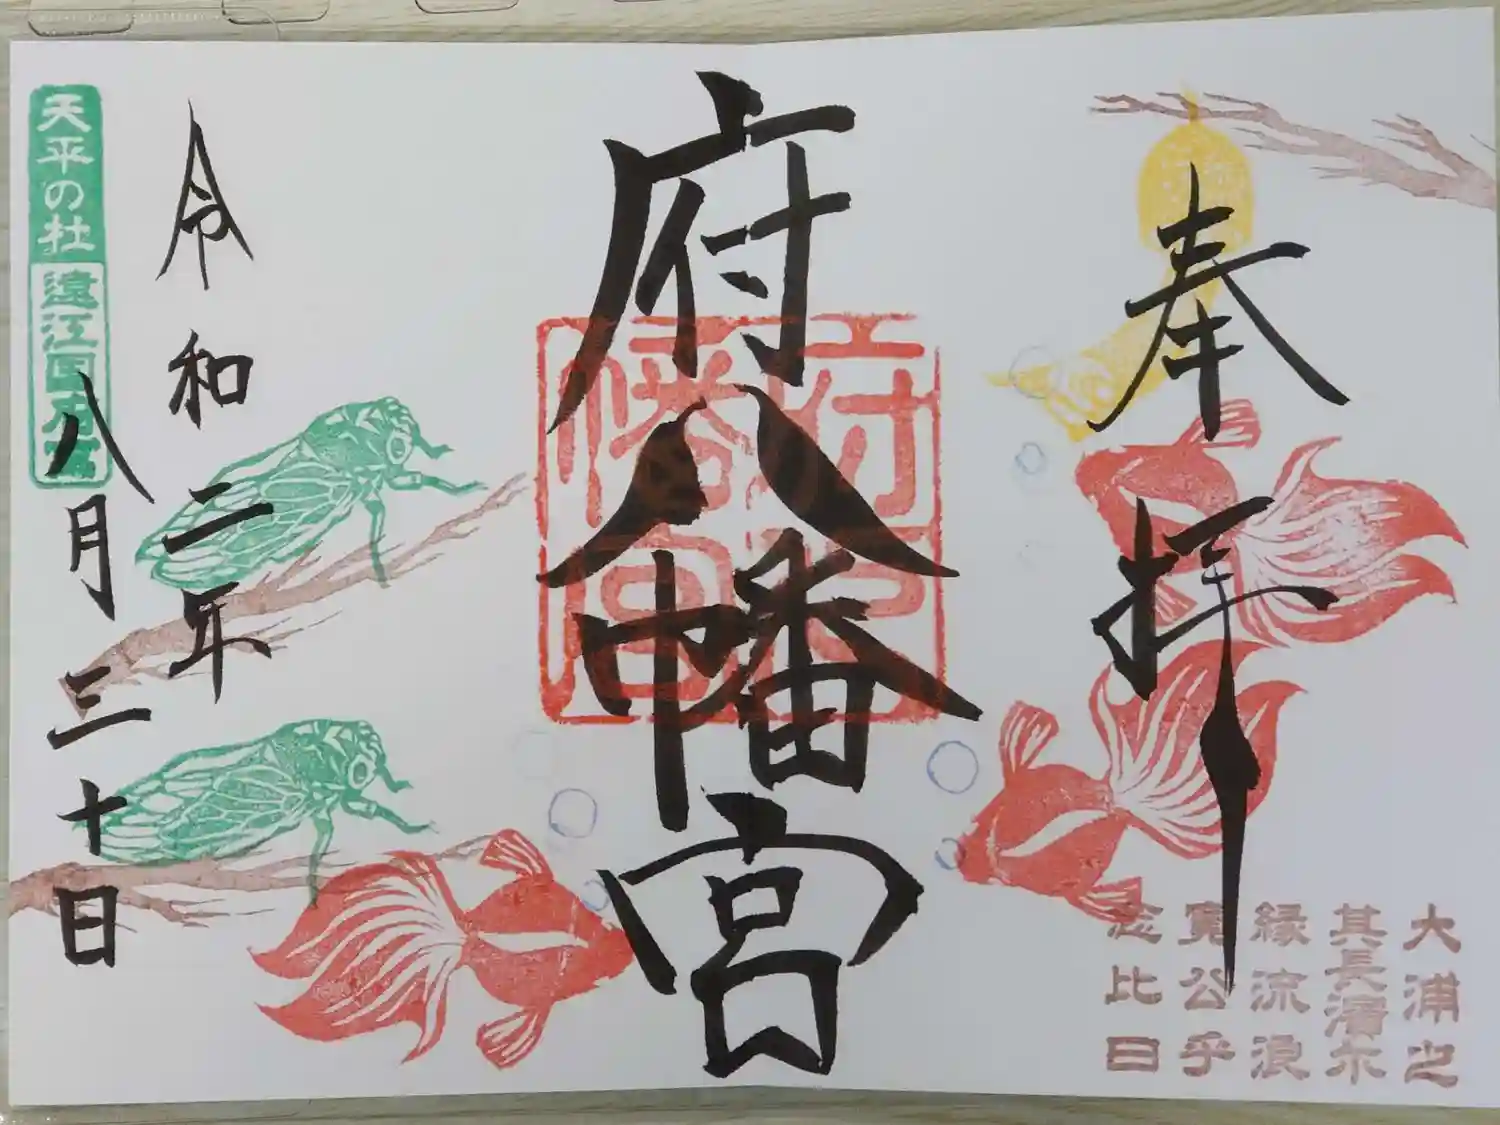 奉拝
大浦之
其長濱尓
縁流浪
寛公乎
念比日
府八幡宮
令和二年
八月三十日
天平の杜
遠江国府